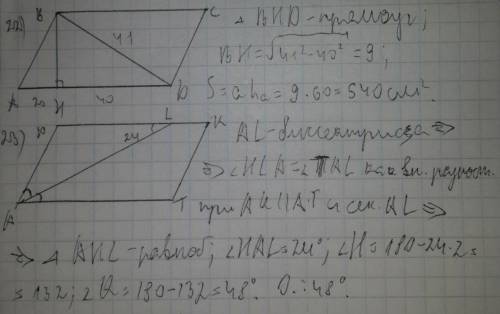 222)
B
C
41
A
20
H
40
D
Δ BHD - прямоуг;
BH = √41² - 40² = 9;
S = a ha = 9 · 60 = 540 см².
223)
H
L
K
24
A
T
AL - биссектриса ⇒
⇒ ∠HLA = ∠TAL как вн. разност.
при HK || AT и сек. AL ⇒
⇒ Δ AHL - равноб; ∠HAL = 24°; ∠H = 180 - 24 · 2 =
= 132; ∠A = 180 - 132 = 48°. О.: 48°.